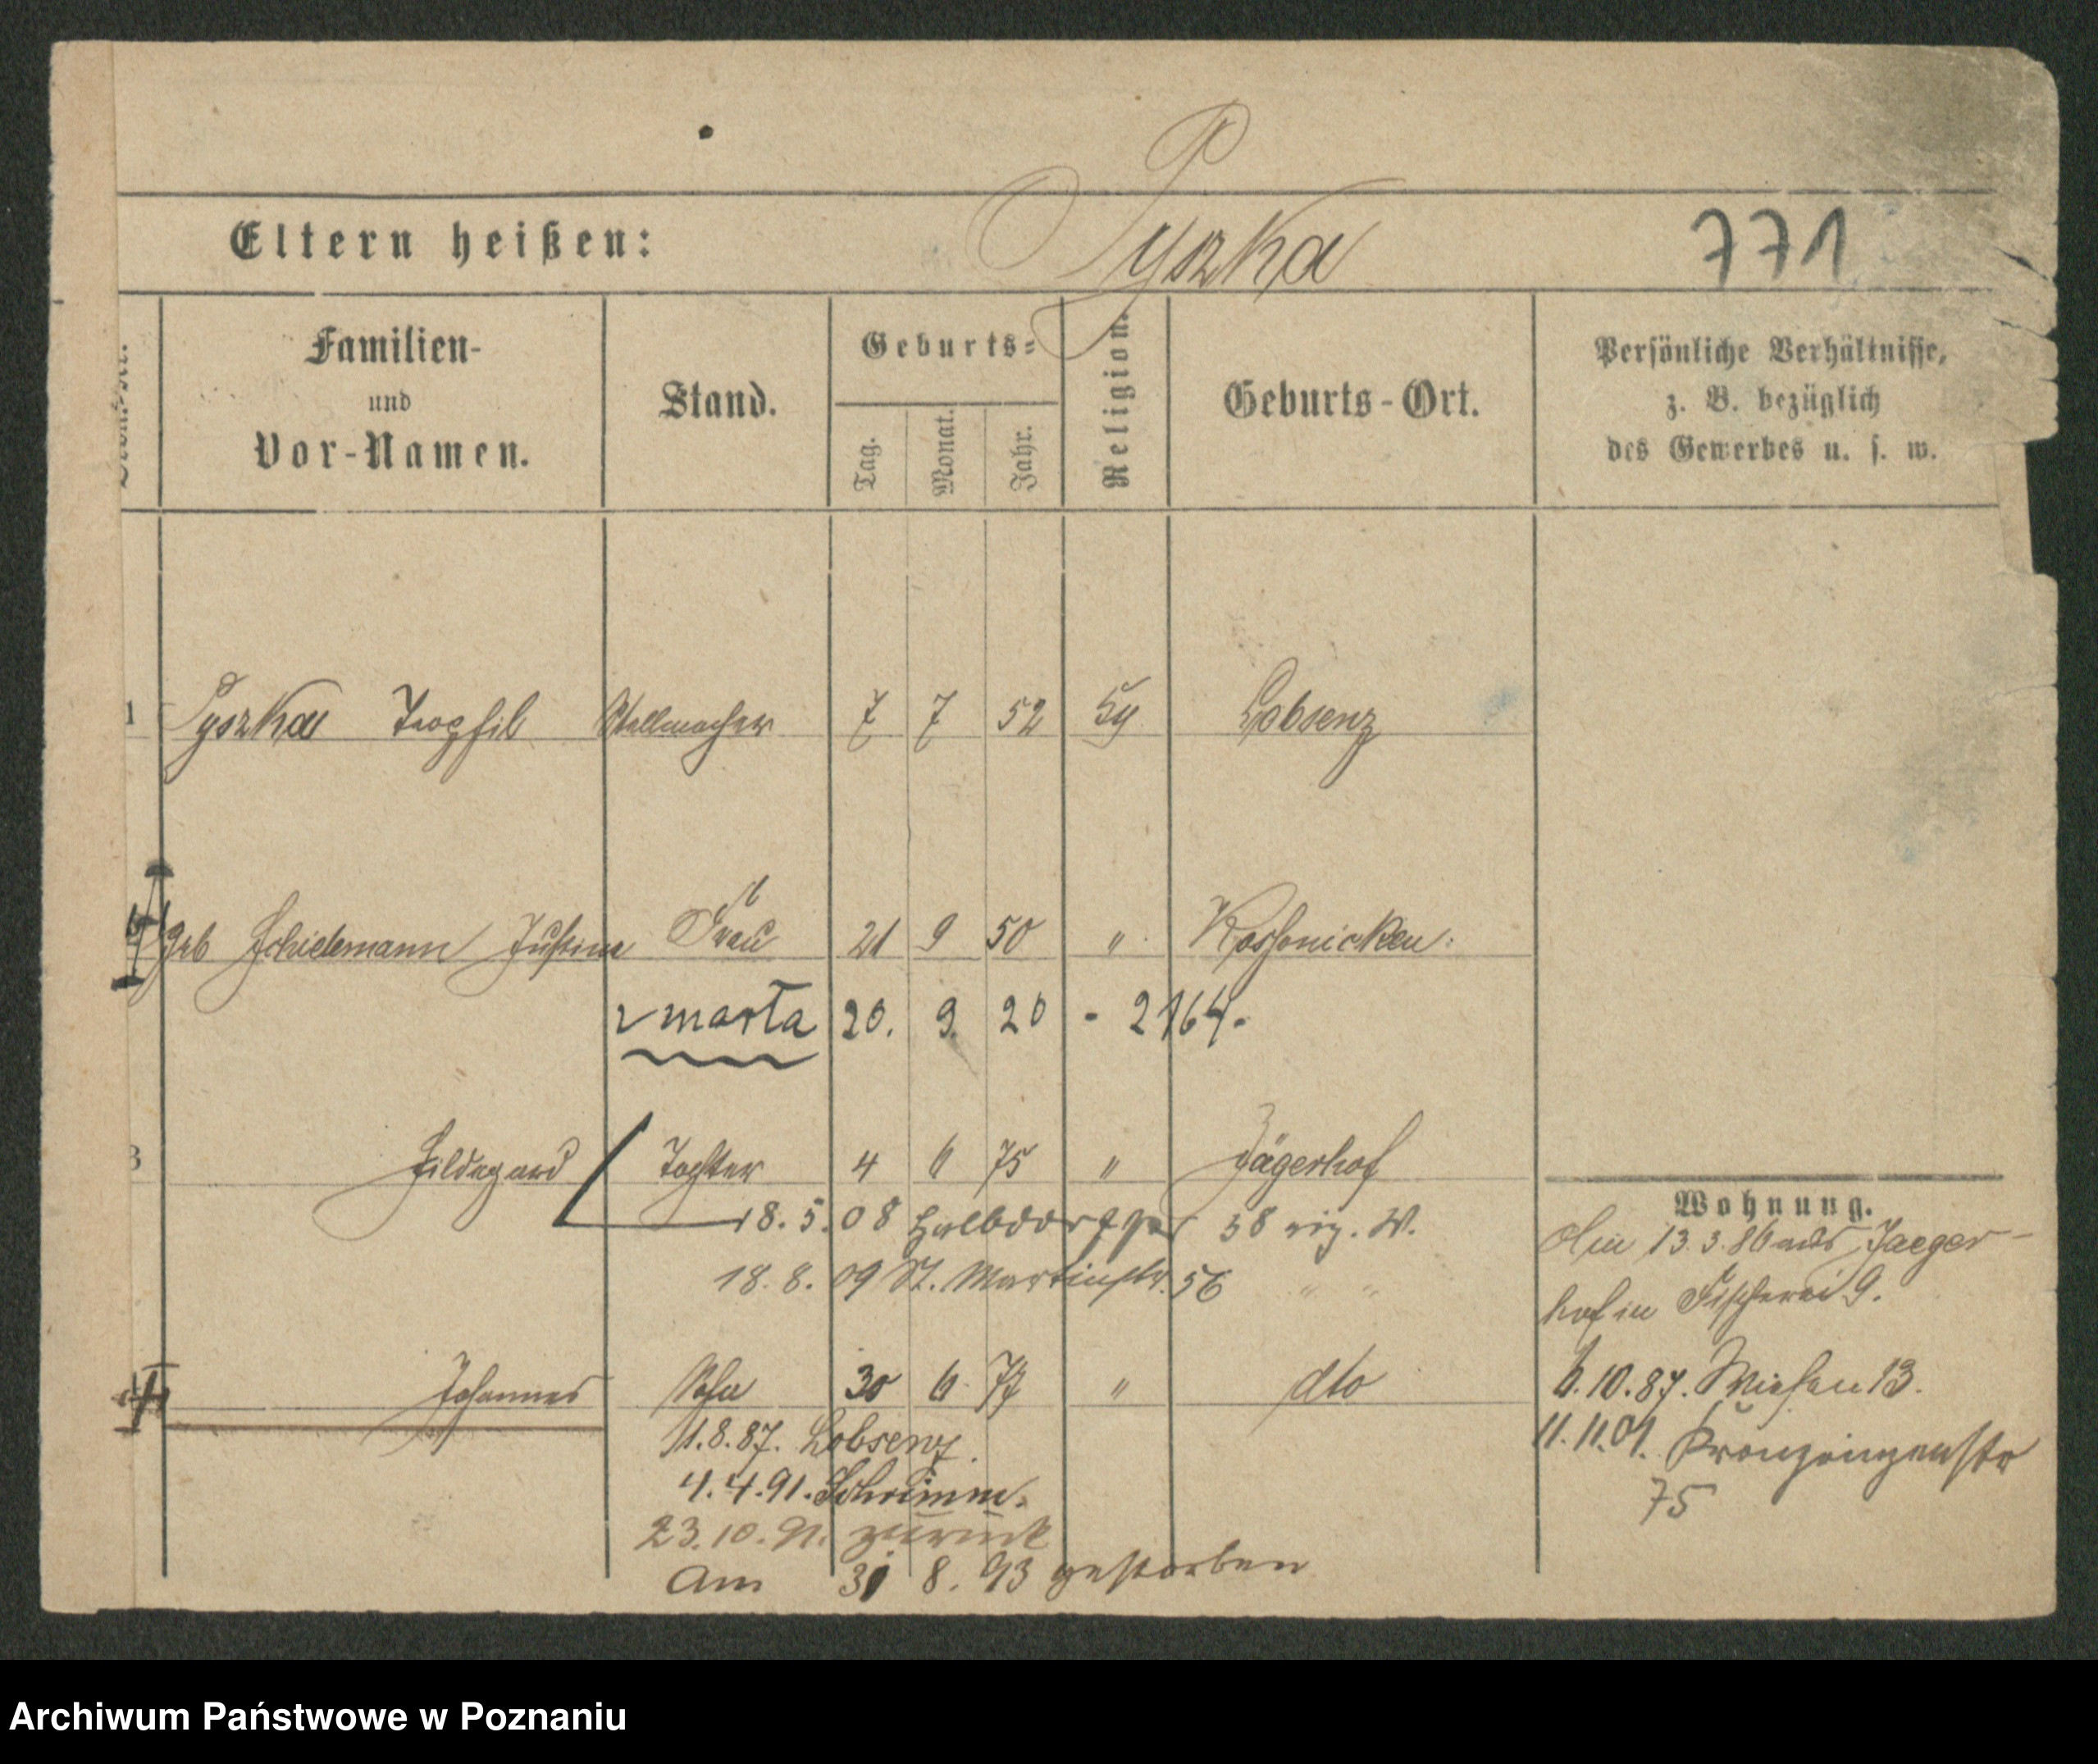 Pyszka 771
Eltern heißen:
Familien- und Vor-Namen.
Stand.
Geburts-
Tag. Monat. Jahr.
Religion.
Geburts-Ort.
Persönliche Verhältnisse,
z. B. bezüglich
des Gewerbes u. s. w.
1 Pyszka Teophil Stellmacher 7 7 52 Lobsenz
geb Schielemann Justine Frau 21 9 50 "
zmarła 20. 9. 20 - 2164.
3 Hildegard Tochter 4 6 75 " Jägerhof
18. 5. 08 Halbdorfstr 38 W.
18. 8. 09 St. Martinstr. 56 " "
Johannes Sohn 30 6 77 " dto
11.8.87. Lobsenz.
4.4.91. Schrimm.
23.10.91. zurück
Am 31 8. 93 gestorben
Wohnung.
13.3.86 aus Jaeger-
hof in Fischerei 9.
6.10.87. Wiesen 13.
11.11.01. Kronprinzenstr
75
Archiwum Państwowe w Poznaniu